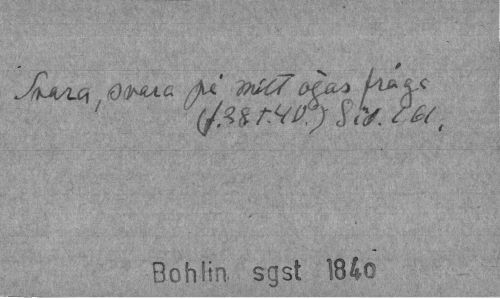 Svara, svara på mitt ögas fråga
(f.38 t.40.) Sid. 161.
Bohlin sgst 1840